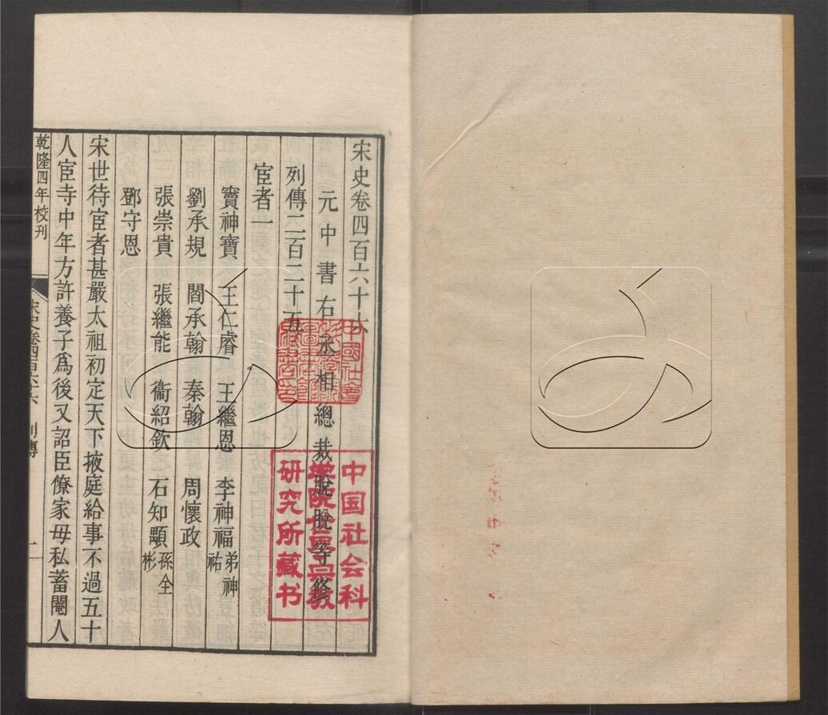 宋史卷四百六十六
元中書右丞相總裁脫脫等修
列傳二百二十五
宦者一
竇神寶 王仁睿 王繼恩 李神福 弟神祐
劉承規 閻承翰 秦翰 周懷政
張崇貴 張繼能 衞紹欽 石知顒 孫全彬
鄧守恩
宋世待宦者甚嚴太祖初定天下掖庭給事不過五十
人宦寺中年方許養子爲後又詔臣僚家毋私蓄閹人
乾隆四年校刊
宋史卷四百六十六 列傳 一
中国社会科
学院世界宗教
研究所藏书